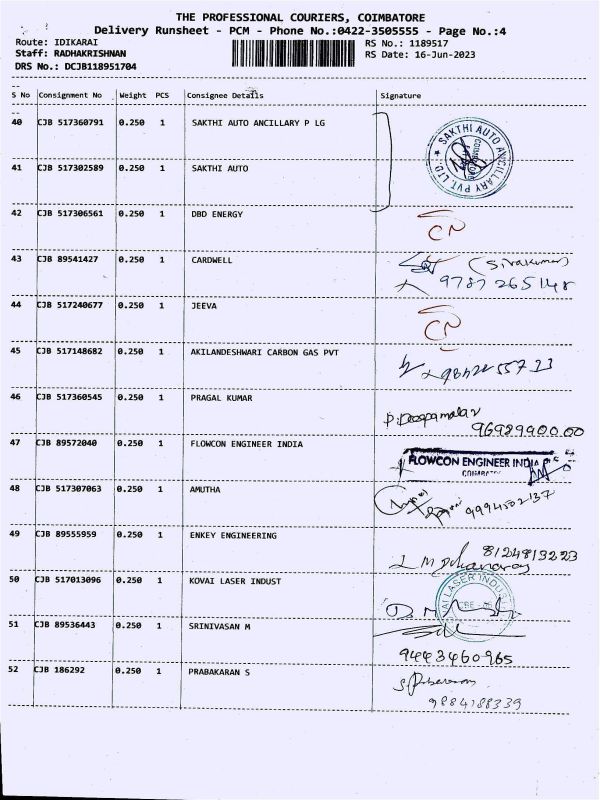 THE PROFESSIONAL COURIERS, COIMBATORE
Delivery Runsheet - PCM - Phone No.:0422-3505555 - Page No.:4
Route: IDIKARAI
RS No.: 1189517
Staff: RADHAKRISHNAN
RS Date: 16-Jun-2023
DRS No.: DCJB118951704
S No Consignment No Weight PCS Consignee Details Signature
40 CJB 517360791 0.250 1 SAKTHI AUTO ANCILLARY P LG
SAKTHI AUTO ANCILLARY PVT. LTD.
41 CJB 517302589 0.250 1 SAKTHI AUTO
42 CJB 517306561 0.250 1 DBD ENERGY
CN
43 CJB 89541427 0.250 1 CARDWELL
(Sivakumar)
9787265148
44 CJB 517240677 0.250 1 JEEVA
CN
45 CJB 517148682 0.250 1 AKILANDESHWARI CARBON GAS PVT
46 CJB 517360545 0.250 1 PRAGAL KUMAR
9698990000
47 CJB 89572040 0.250 1 FLOWCON ENGINEER INDIA
FLOWCON ENGINEER INDIA
COIMBATORE
48 CJB 517307063 0.250 1 AMUTHA
9994502137
49 CJB 89555959 0.250 1 ENKEY ENGINEERING
8124813223
50 CJB 517013096 0.250 1 KOVAI LASER INDUST
51 CJB 89536443 0.250 1 SRINIVASAN M
9443460965
52 CJB 186292 0.250 1 PRABAKARAN S
9884188339